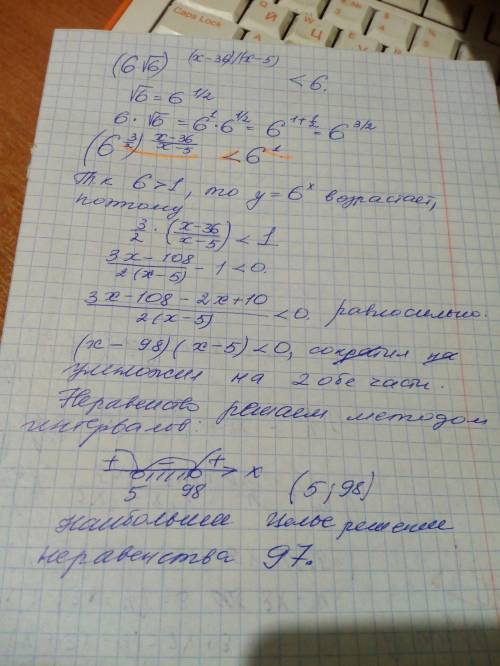 Caps Lock
(6√6)^((x-36)/(x-5)) < 6.
√6 = 6^(1/2)
6·√6 = 6^1·6^(1/2) = 6^(1+1/2) = 6^(3/2)
(6^(3/2))^((x-36)/(x-5)) < 6^1
Т.к 6>1, то y = 6^x возрастает,
поэтому
3/2 · ((x-36)/(x-5)) < 1
(3x-108)/(2(x-5)) - 1 < 0.
(3x-108-2x+10)/(2(x-5)) < 0. равносильно.
(x-98)(x-5)<0,
умножил на 2 обе части.
Неравенство решаем методом
интервалов:
+ - + x
5 98 (5;98)
наибольшее целое решение
неравенства 97.